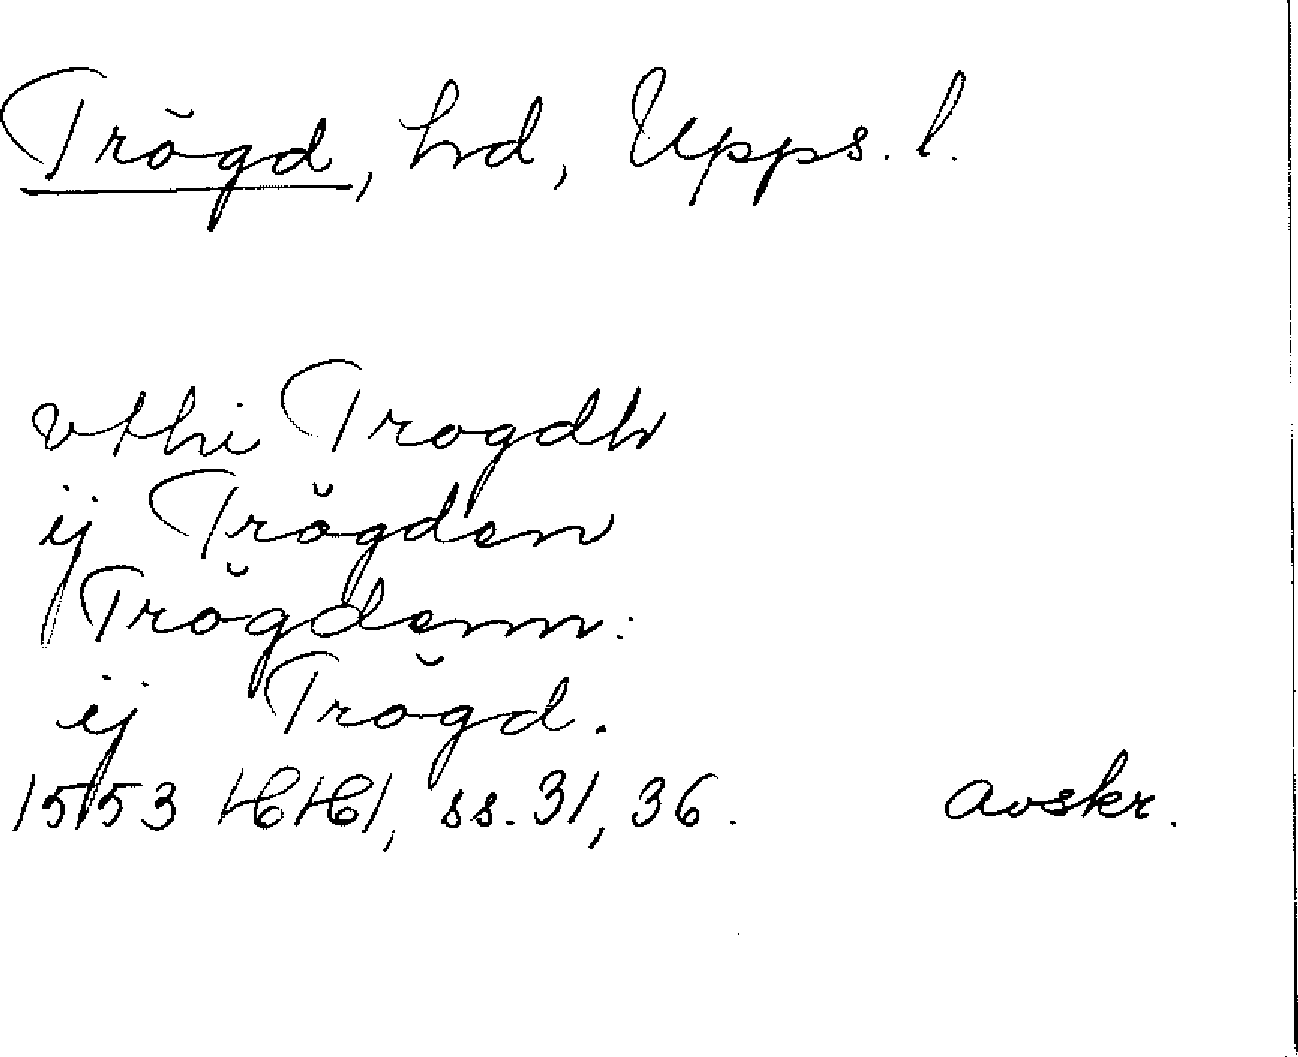 Trögd, hd, Upps. l.
vthi Trogdh
ij Trögden
Trögdenn:
ij Trögd.
1553 HH1, ss. 31, 36. avskr.